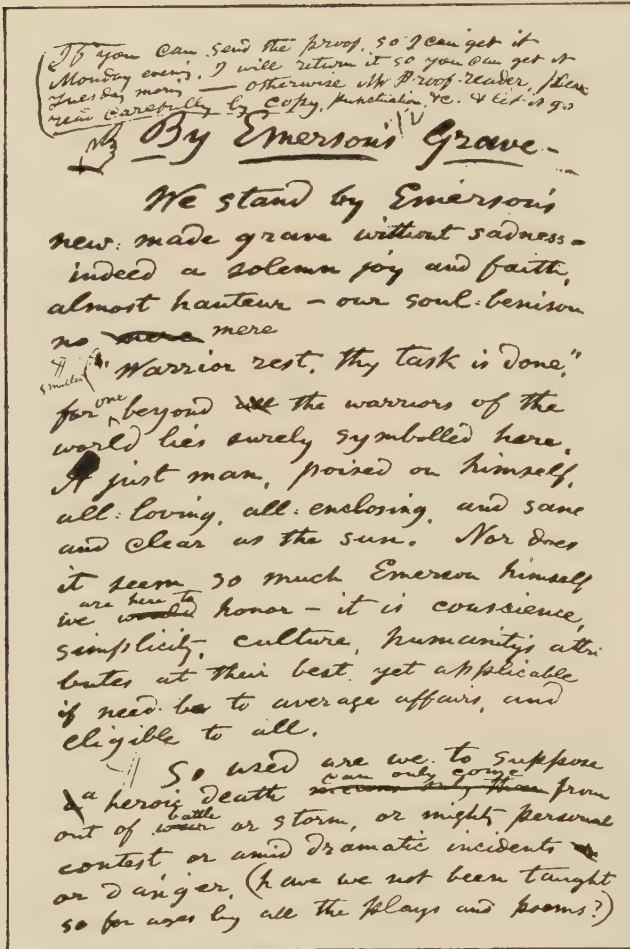 If you can send the proof, so I can get it
Monday even'g, I will return it so you can get it
Tuesday morn'g — otherwise Mr Proof-reader, please
read carefully by copy, punctuation &c. & let it go
By Emerson's Grave —
We stand by Emerson's
new-made grave without sadness —
indeed a solemn joy and faith,
almost hauteur — our soul-benison
no mere mere
"Warrior rest, thy task is done,"
smaller
one
for beyond all the warriors of the
world lies surely symbolled here.
A just man, poised on himself,
all-loving, all-enclosing, and sane
and clear as the sun. Nor does
it seem so much Emerson himself
are here to
we honor — it is conscience,
simplicity, culture, humanity's attri
butes at their best, yet applicable
if need be to average affairs, and
eligible to all.
So used are we to suppose
can only come
a heroic death from
battle
out of war or storm, or mighty personal
contest or amid dramatic incidents
or danger, (have we not been taught
so for ages by all the plays and poems?)